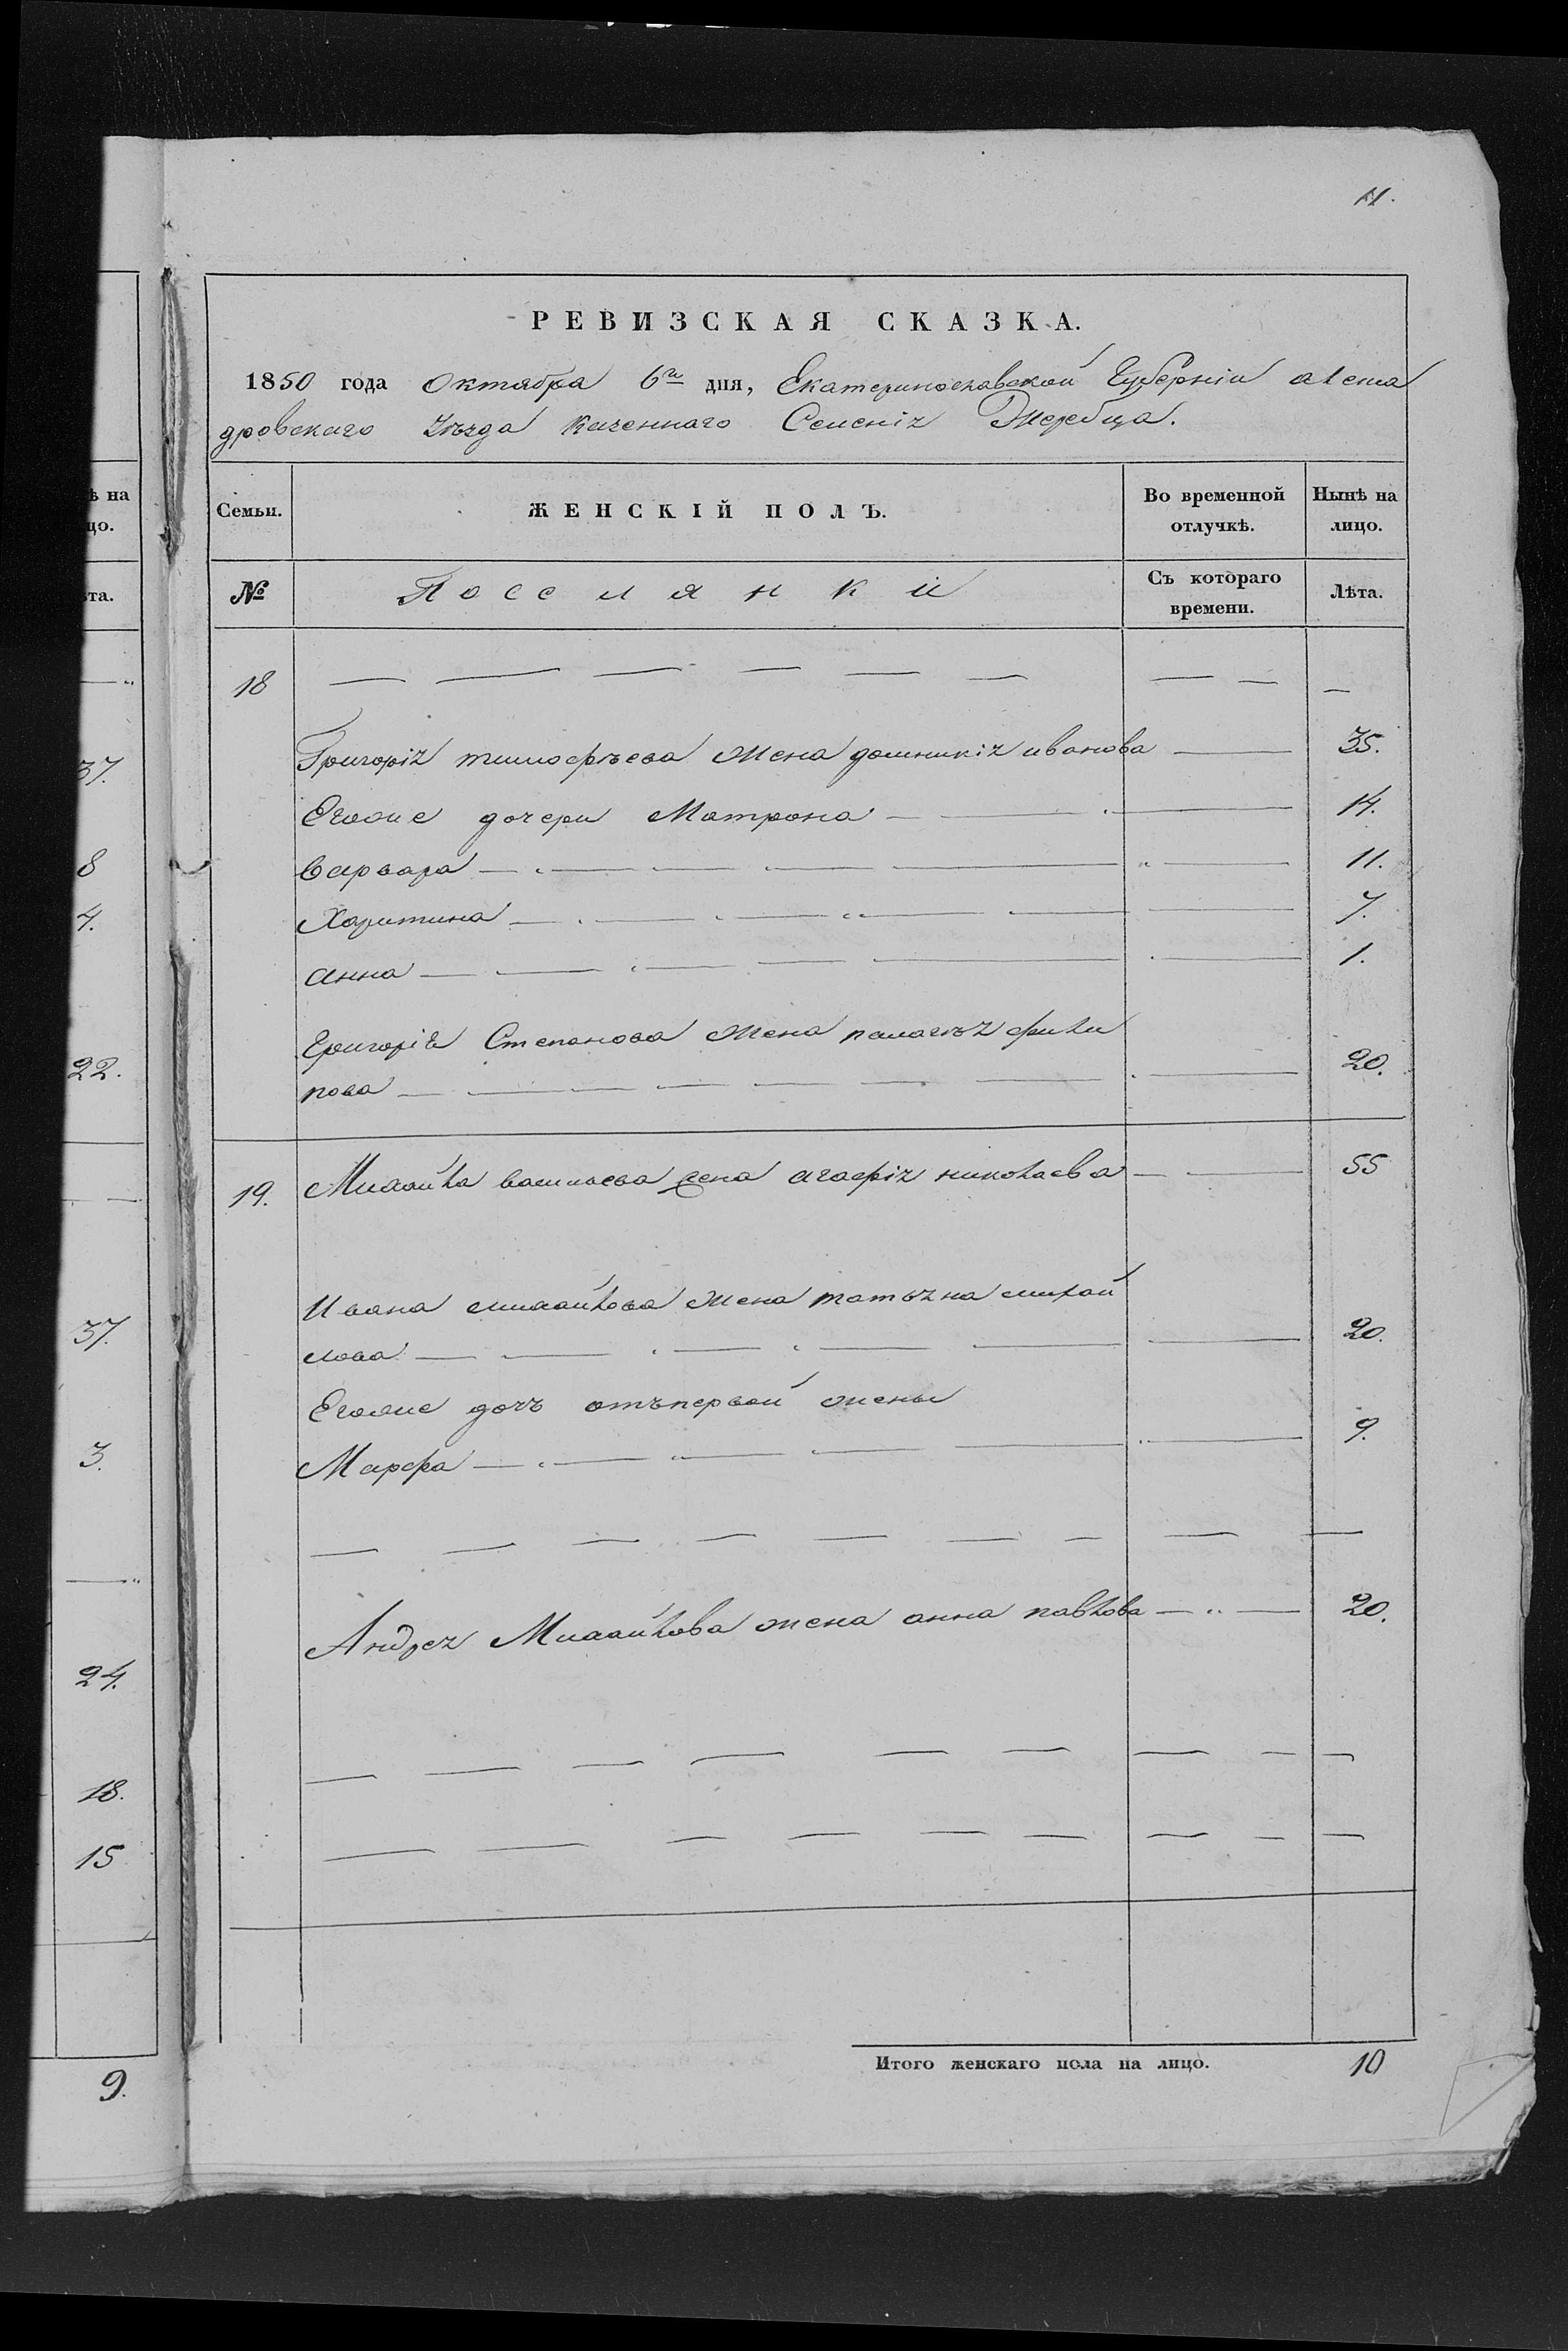 11.
РЕВИЗСКАЯ СКАЗКА.
1850 года Октября 6го дня, Екатеринославской Губерніи алекса
дровскаго уѣзда казеннаго Селенія Жеребца.
Семьи. ЖЕНСКІЙ ПОЛЪ. Во временной отлучкѣ. Нынѣ на лицо.
№ Посселянки Съ котораго времени. Лѣта.
18
Григорія тимофѣева жена домникія иванова 35.
Егоже дочери Матрона 14.
варвара 11.
Харитина 7.
анна 1.
Григорія Степанова жена палагѣя фили
пова 20.
19. Михайла васильева жена агафія николаева 55
Ивана михайлова жена татьяна михай
лова 20.
Егоже дочь отъпервой жены
Марфа 9.
Андрея Михайлова жена анна павлова 20.
Итого женскаго пола на лицо. 10
ѣ на
цо.
ѣта.
37.
8
4.
22.
37.
3.
24.
18.
15
9.